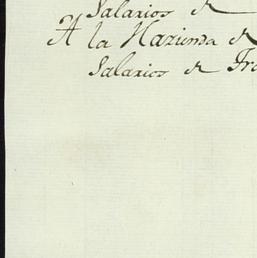 Salarios de
A la Hazienda de
Salarios de Fra